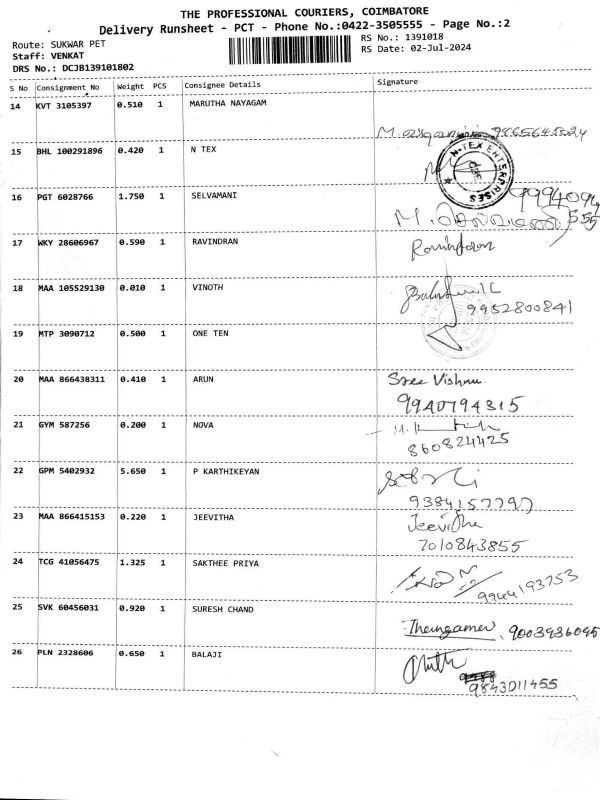 THE PROFESSIONAL COURIERS, COIMBATORE
Delivery Runsheet - PCT - Phone No.:0422-3505555 - Page No.:2
Route: SUKWAR PET RS No.: 1391018
Staff: VENKAT RS Date: 02-Jul-2024
DRS No.: DCJB139101802
S No Consignment No Weight PCS Consignee Details Signature
14 KVT 3105397 0.510 1 MARUTHA NAYAGAM
15 BHL 100291896 0.420 1 N TEX
N-TEX ENTERPRISES
16 PGT 6028766 1.750 1 SELVAMANI
17 WKY 28606967 0.590 1 RAVINDRAN
18 MAA 105529130 0.010 1 VINOTH
9952800841
19 MTP 3090712 0.500 1 ONE TEN
20 MAA 866438311 0.410 1 ARUN Sree Vishnu
9940794315
21 GYM 587256 0.200 1 NOVA
860824425
22 GPM 5402932 5.650 1 P KARTHIKEYAN
9384157797
23 MAA 866415153 0.220 1 JEEVITHA Jeevitha
7010843855
24 TCG 41056475 1.325 1 SAKTHEE PRIYA
9944193753
25 SVK 60456031 0.920 1 SURESH CHAND
9003936095
26 PLN 2328606 0.650 1 BALAJI
9843011455